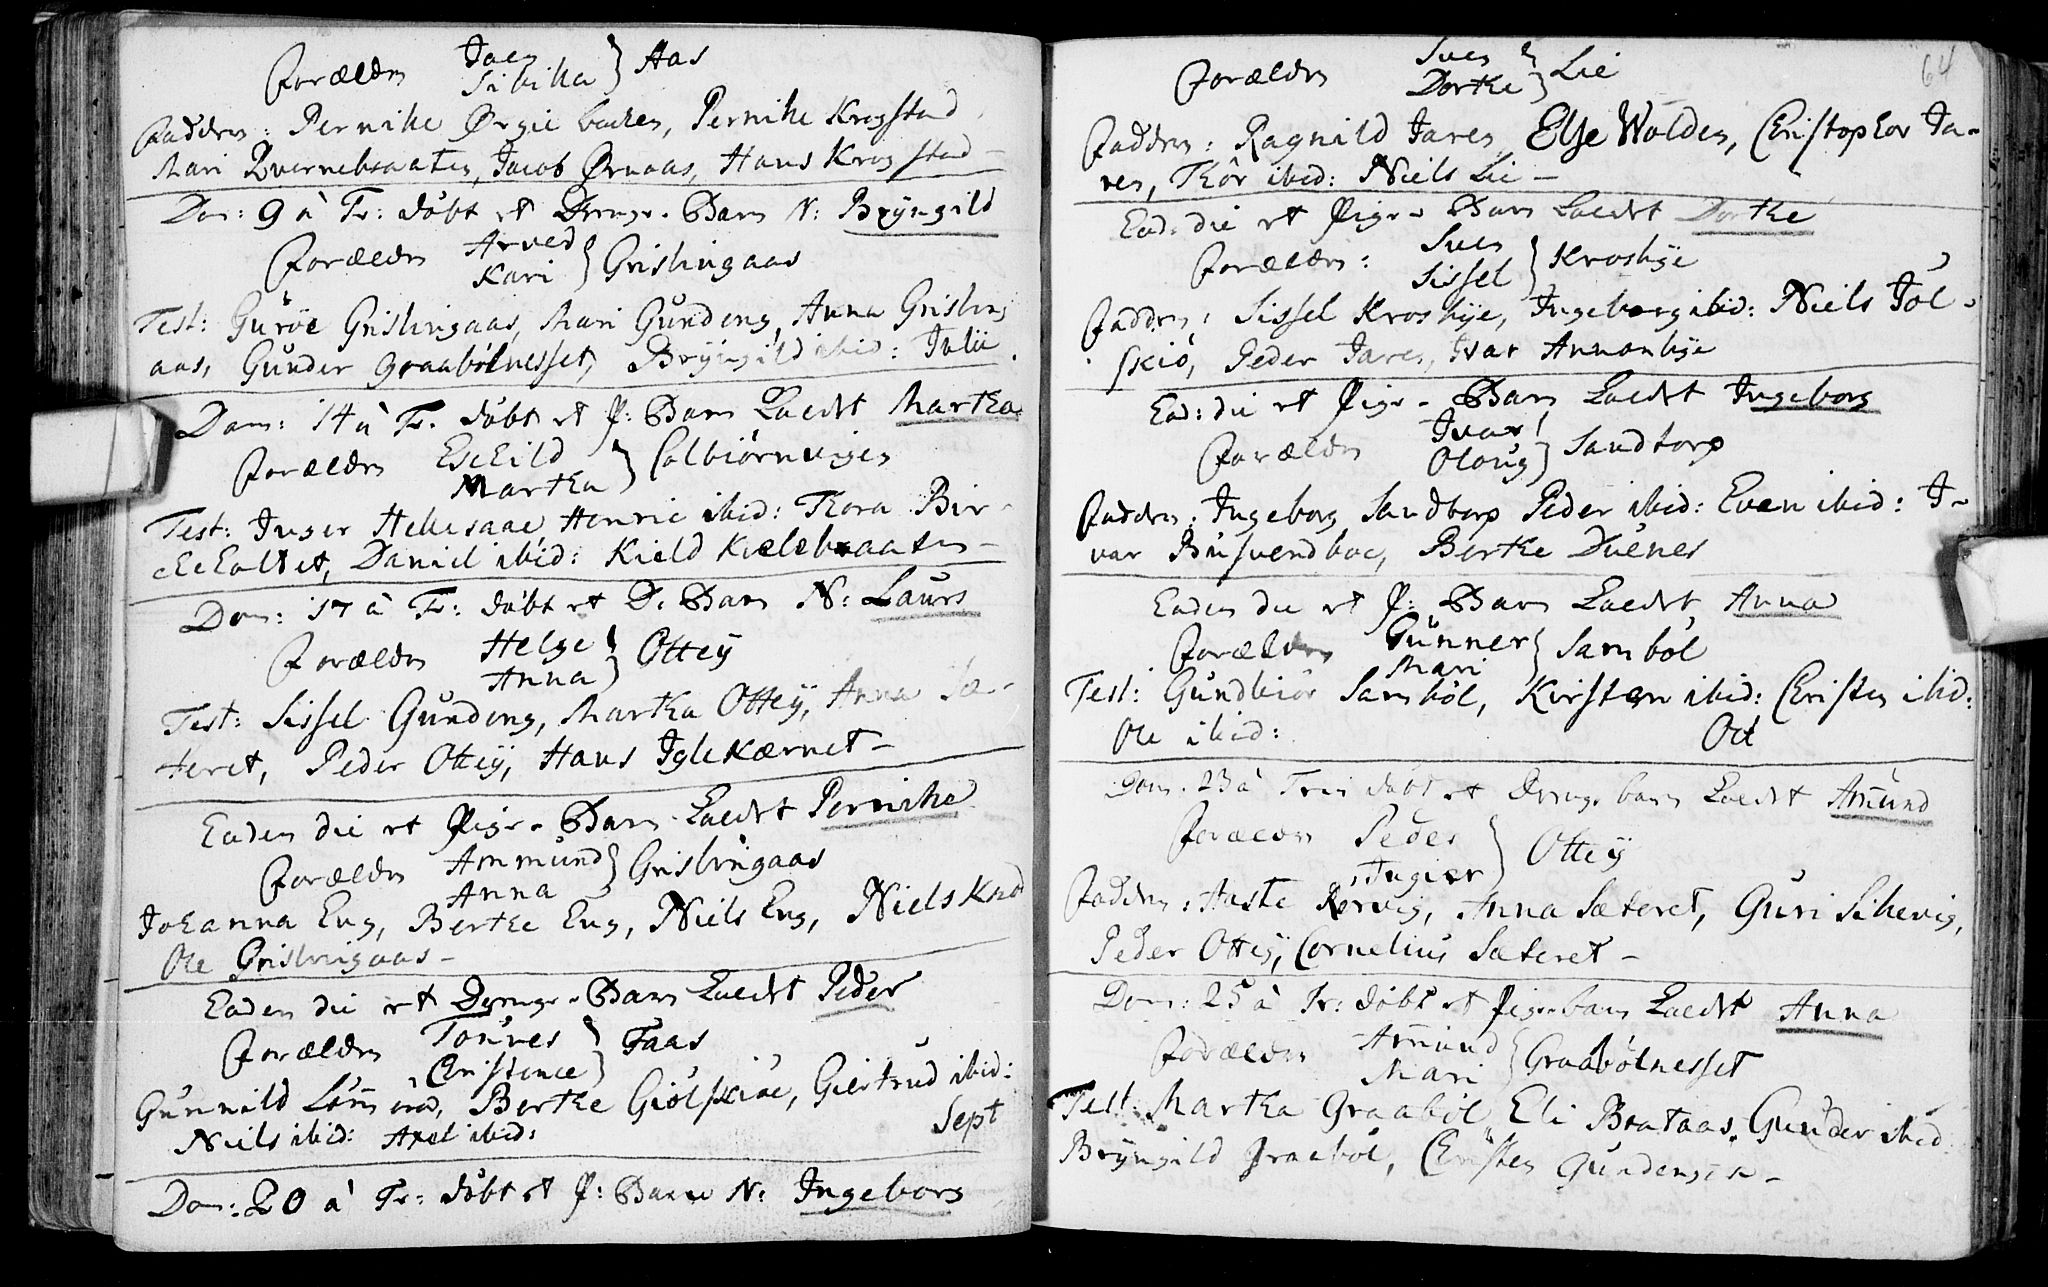 Forældre Joen } Aas
Sibilla
Faddre: Pernille Ørgie backen, Pernille Krogstad
Mari Qvernebraaten, Jacob Ørnaas, Hans Krogstad –
Dom: 9 à Tr: døbt et Drenge-Barn N: Brÿngild
Forældre Arved } Grislingaas
Kari
Test: Guroe Grislingaas, Mari Gundeng, Anna Grisling
aas, Gunder Graabølnesset, Brÿngild ibid: Julii.
Dom: 14 à Tr. døbt et P: Barn kaldt Martha
Forældre Eskild } Colbiørnvigen
Martha
Test: Inger Hellesaae Henric ibid: Thora Bir-
keholtet, Daniel ibid: Kield Kielebraaten –
Dom: 17 à Tr: døbt et D. Barn N: Laurs
Forældre Helge } Otteÿ
Anna
Test: Sissel Gundeng, Martha Otteÿ, Anna Sæ-
teret, Peder Otteÿ, Hans Iglekærnet –
Eadem die et Pige-Barn kaldt Pernille
Forældre Ammund } Grislingaas
Anna
Johanna Eng, Berthe Eng, Niels Eng, Niels Knod
Ole Grislingaas –
Eadem die et Drenge-Barn kaldt Peder
Forældre Tønnes } Faas
Christence
Gunnild Berthe Giølskiøe, Giertrud ibid:
Niels ibid: Axel ibid: Sept
Dom: 20 à Tr: døbt et P: Barn N: Ingeborg
64
Forældre Sven } Lie
Dorthe
Faddre: Ragnild Jaren, Else Wolden, Christopher Ja-
ren, Thor ibid: Niels Lie –
Ead: die et Pige-Barn kaldt Dorthe
Forældre: Sven } Krosbÿe
Sissel
Faddre: Sissel Krosbÿe, Ingeborg ibid: Niels Jøl-
skiø, Peder Jaren, Ivar Annonbÿe
Ead: die et Pige-Barn kaldt Ingeborg
Forældre Ivar } Sandtorp
Oloug
Faddre: Ingeborg Sandtorp Peder ibid: Even ibid: I-
var Busvendboe, Berthe Duenes
Eadem die et P: Barn kaldt Anna
Forældre Gunner } Sambøl
Mari
Test: Gundbiør Sambøl, Kirsten ibid: Christen ibid:
Ole ibid: Oct
Dom. 23 à Trin døbt et Drenge barn kaldt Amund
Forældre Peder } Otteÿ
Ingier
Faddre: Aaste Rørvig, Anna Sæteret, Guri Sillevig,
Peder Otteÿ, Cornelius Sæteret –
Dom: 25 à Tr: døbt et Pige-barn kaldt Anna
Forældre Amund } Graabølnesset
Mari
Test: Martha Graabøl, Eli Brataas, Gunder ibid
Brÿngild Graabøl, Christen